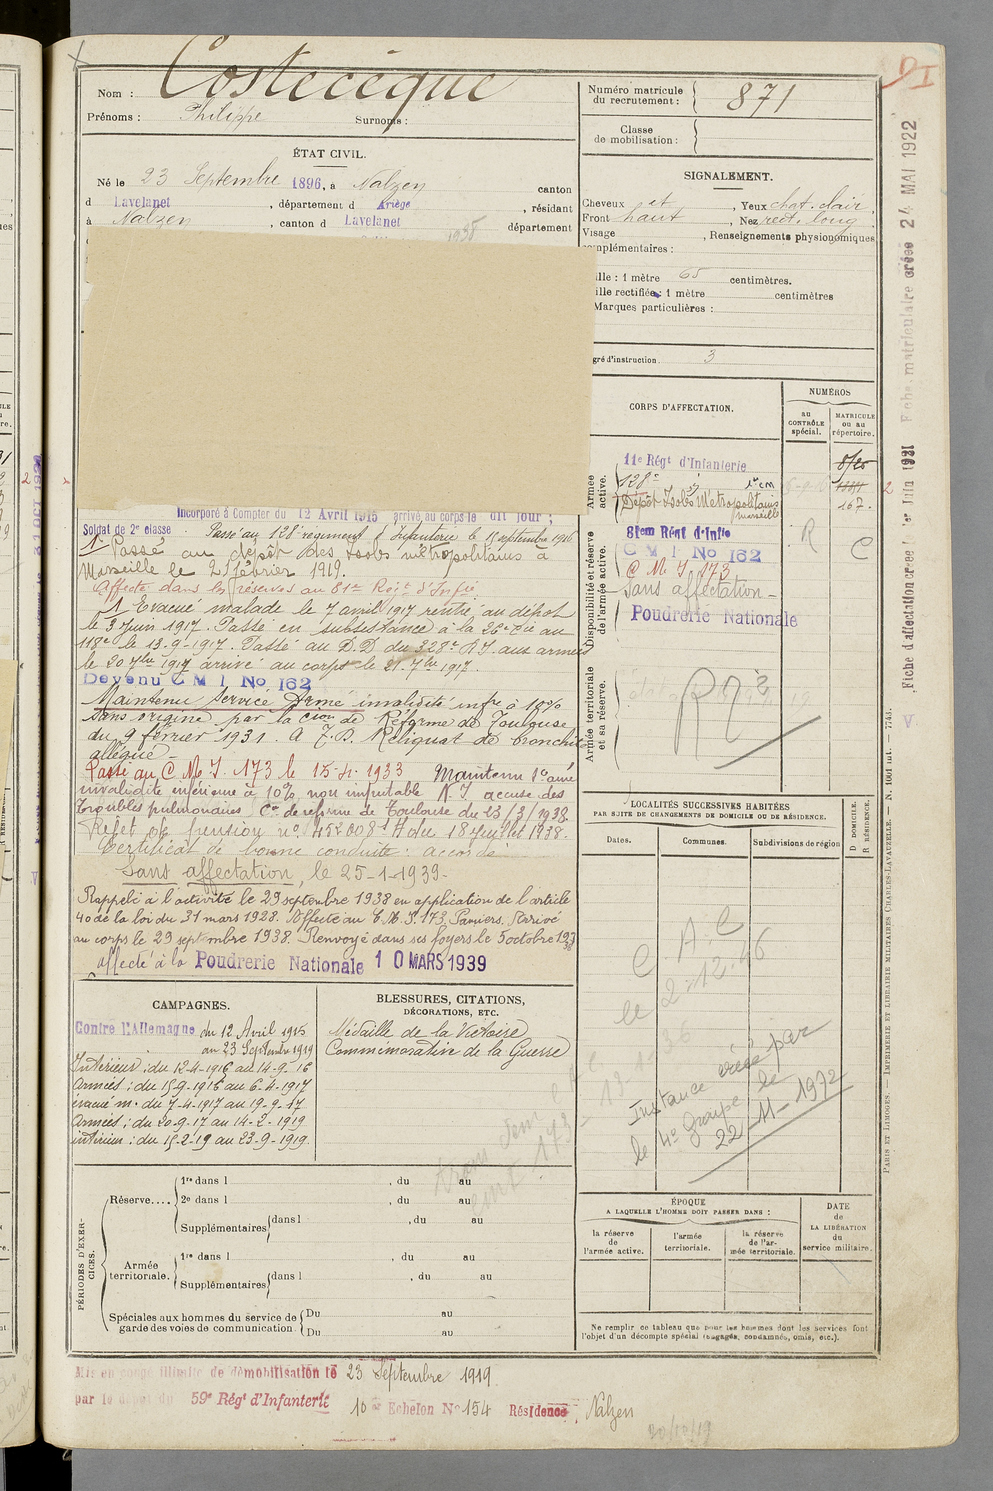 Nom : Costecèque
Prénoms : Philippe Surnoms :
ÉTAT CIVIL.
Né le 23 Septembre 1896, à Nalzen canton
d Lavelanet, département d Ariège, résidant
à Nalzen, canton d Lavelanet département
1938
Incorporé à Compter du 12 Avril 1915 arrivé au corps le dit jour ;
Soldat de 2e classe Passé au 128e régiment d'Infanterie le 15 septembre 1916
Passé au dépôt des Isolés métropolitains à
Marseille le 21 février 1919.
Affecté dans les réserves au 81me Régt d'Infie
1 Evacué malade le 7 avril 1917 rentré au dépôt
le 3 juin 1917. Passé en subsistance à la 26e Cie au
118e le 13-9-1917. Passé au D.D du 328e R.I. aux armées
le 20 7bre 1917 arrivé au corps le 21-7bre 1917.
Devenu C M I No 162
Maintenu Service Armé invalidité infre à 10%
sans origine par la Cion de Réforme de Toulouse
du 9 février 1931. A.F.P. Reliquat de bronchite
alléguée -
Passé au C.M.I. 173 le 15-4-1933 Maintenu Sce armé
invalidité inférieure à 10%, non imputable N.I accuse des
troubles pulmonaires Con de réforme de Toulouse du 23/3/1938.
Rejet de pension no 452008 A du 18 juillet 1938.
Certificat de bonne conduite : accordé
Sans affectation, le 25-1-1939-
Rappelé à l'activité le 29 septembre 1938 en application de l'article
40 de la loi du 31 mars 1928. Affecté au C.M.I. 173 Pamiers. Arrivé
au corps le 29 septembre 1938. Renvoyé dans ses foyers le 5 octobre 1938
affecté à la Poudrerie Nationale 10 MARS 1939
CAMPAGNES.
Contre l'Allemagne du 12 Avril 1915
au 23 Septembre 1919
Intérieur : du 12-4-1916 au 14-9-16
Armées : du 15-9-1916 au 6-4-1917
évacué m. du 7-4-1917 au 19-9-17
Armées : du 20-9-17 au 14-2-1919
intérieur : du 15-2-19 au 23-9-1919.
BLESSURES, CITATIONS,
DÉCORATIONS, ETC.
Médaille de la Victoire
Commémorative de la Guerre
PÉRIODES D'EXERCICES.
Réserve....
1re dans l , du au
2e dans l , du au
Supplémentaires dans l , du au
Armée territoriale.
1re dans l , du au
Supplémentaires dans l , du au
Spéciales aux hommes du service de garde des voies de communication.
Du au
Du au
Mis en congé illimité de démobilisation le 23 Septembre 1919.
par le dépôt du 59e Régt d'Infanterie 10e Echelon No 154 Résidence, Nalzen
20/10/19
Numéro matricule
du recrutement : 871
Classe
de mobilisation :
SIGNALEMENT.
Cheveux et , Yeux chat. clair,
Front haut , Nez rect. long
Visage , Renseignements physionomiques
complémentaires :
Taille : 1 mètre 65 centimètres.
Taille rectifiée : 1 mètre centimètres
Marques particulières :
Degré d'instruction. 3
CORPS D'AFFECTATION.
NUMÉROS
au CONTRÔLE spécial.
MATRICULE ou au répertoire.
Armée active.
11e Régt d'Infanterie
128e
Dépôt Isolés Métropolitains Marseille
167.
Disponibilité et réserve de l'armée active.
81em Rént d'Infie
C M I No 162
C M I. 173
Sans affectation -
Poudrerie Nationale
R
C
Armée territoriale et sa réserve.
LOCALITÉS SUCCESSIVES HABITÉES
PAR SUITE DE CHANGEMENTS DE DOMICILE OU DE RÉSIDENCE.
Dates. Communes. Subdivisions de région
D DOMICILE.
R RÉSIDENCE.
C.A.C
le 2-12-46
Instance créée par
le 4e groupe le
22-11-1972
ÉPOQUE
A LAQUELLE L'HOMME DOIT PASSER DANS :
la réserve de l'armée active.
l'armée territoriale.
la réserve de l'armée territoriale.
DATE de LA LIBÉRATION du service militaire.
Ne remplir ce tableau que pour les hommes dont les services font
l'objet d'un décompte spécial (engagés, condamnés, omis, etc.).
Fiche matriculaire créée 24 MAI 1922
Fiche d'affectation créée 1er Juin 1921
PARIS ET LIMOGES. — IMPRIMERIE ET LIBRAIRIE MILITAIRES CHARLES-LAVAUZELLE.